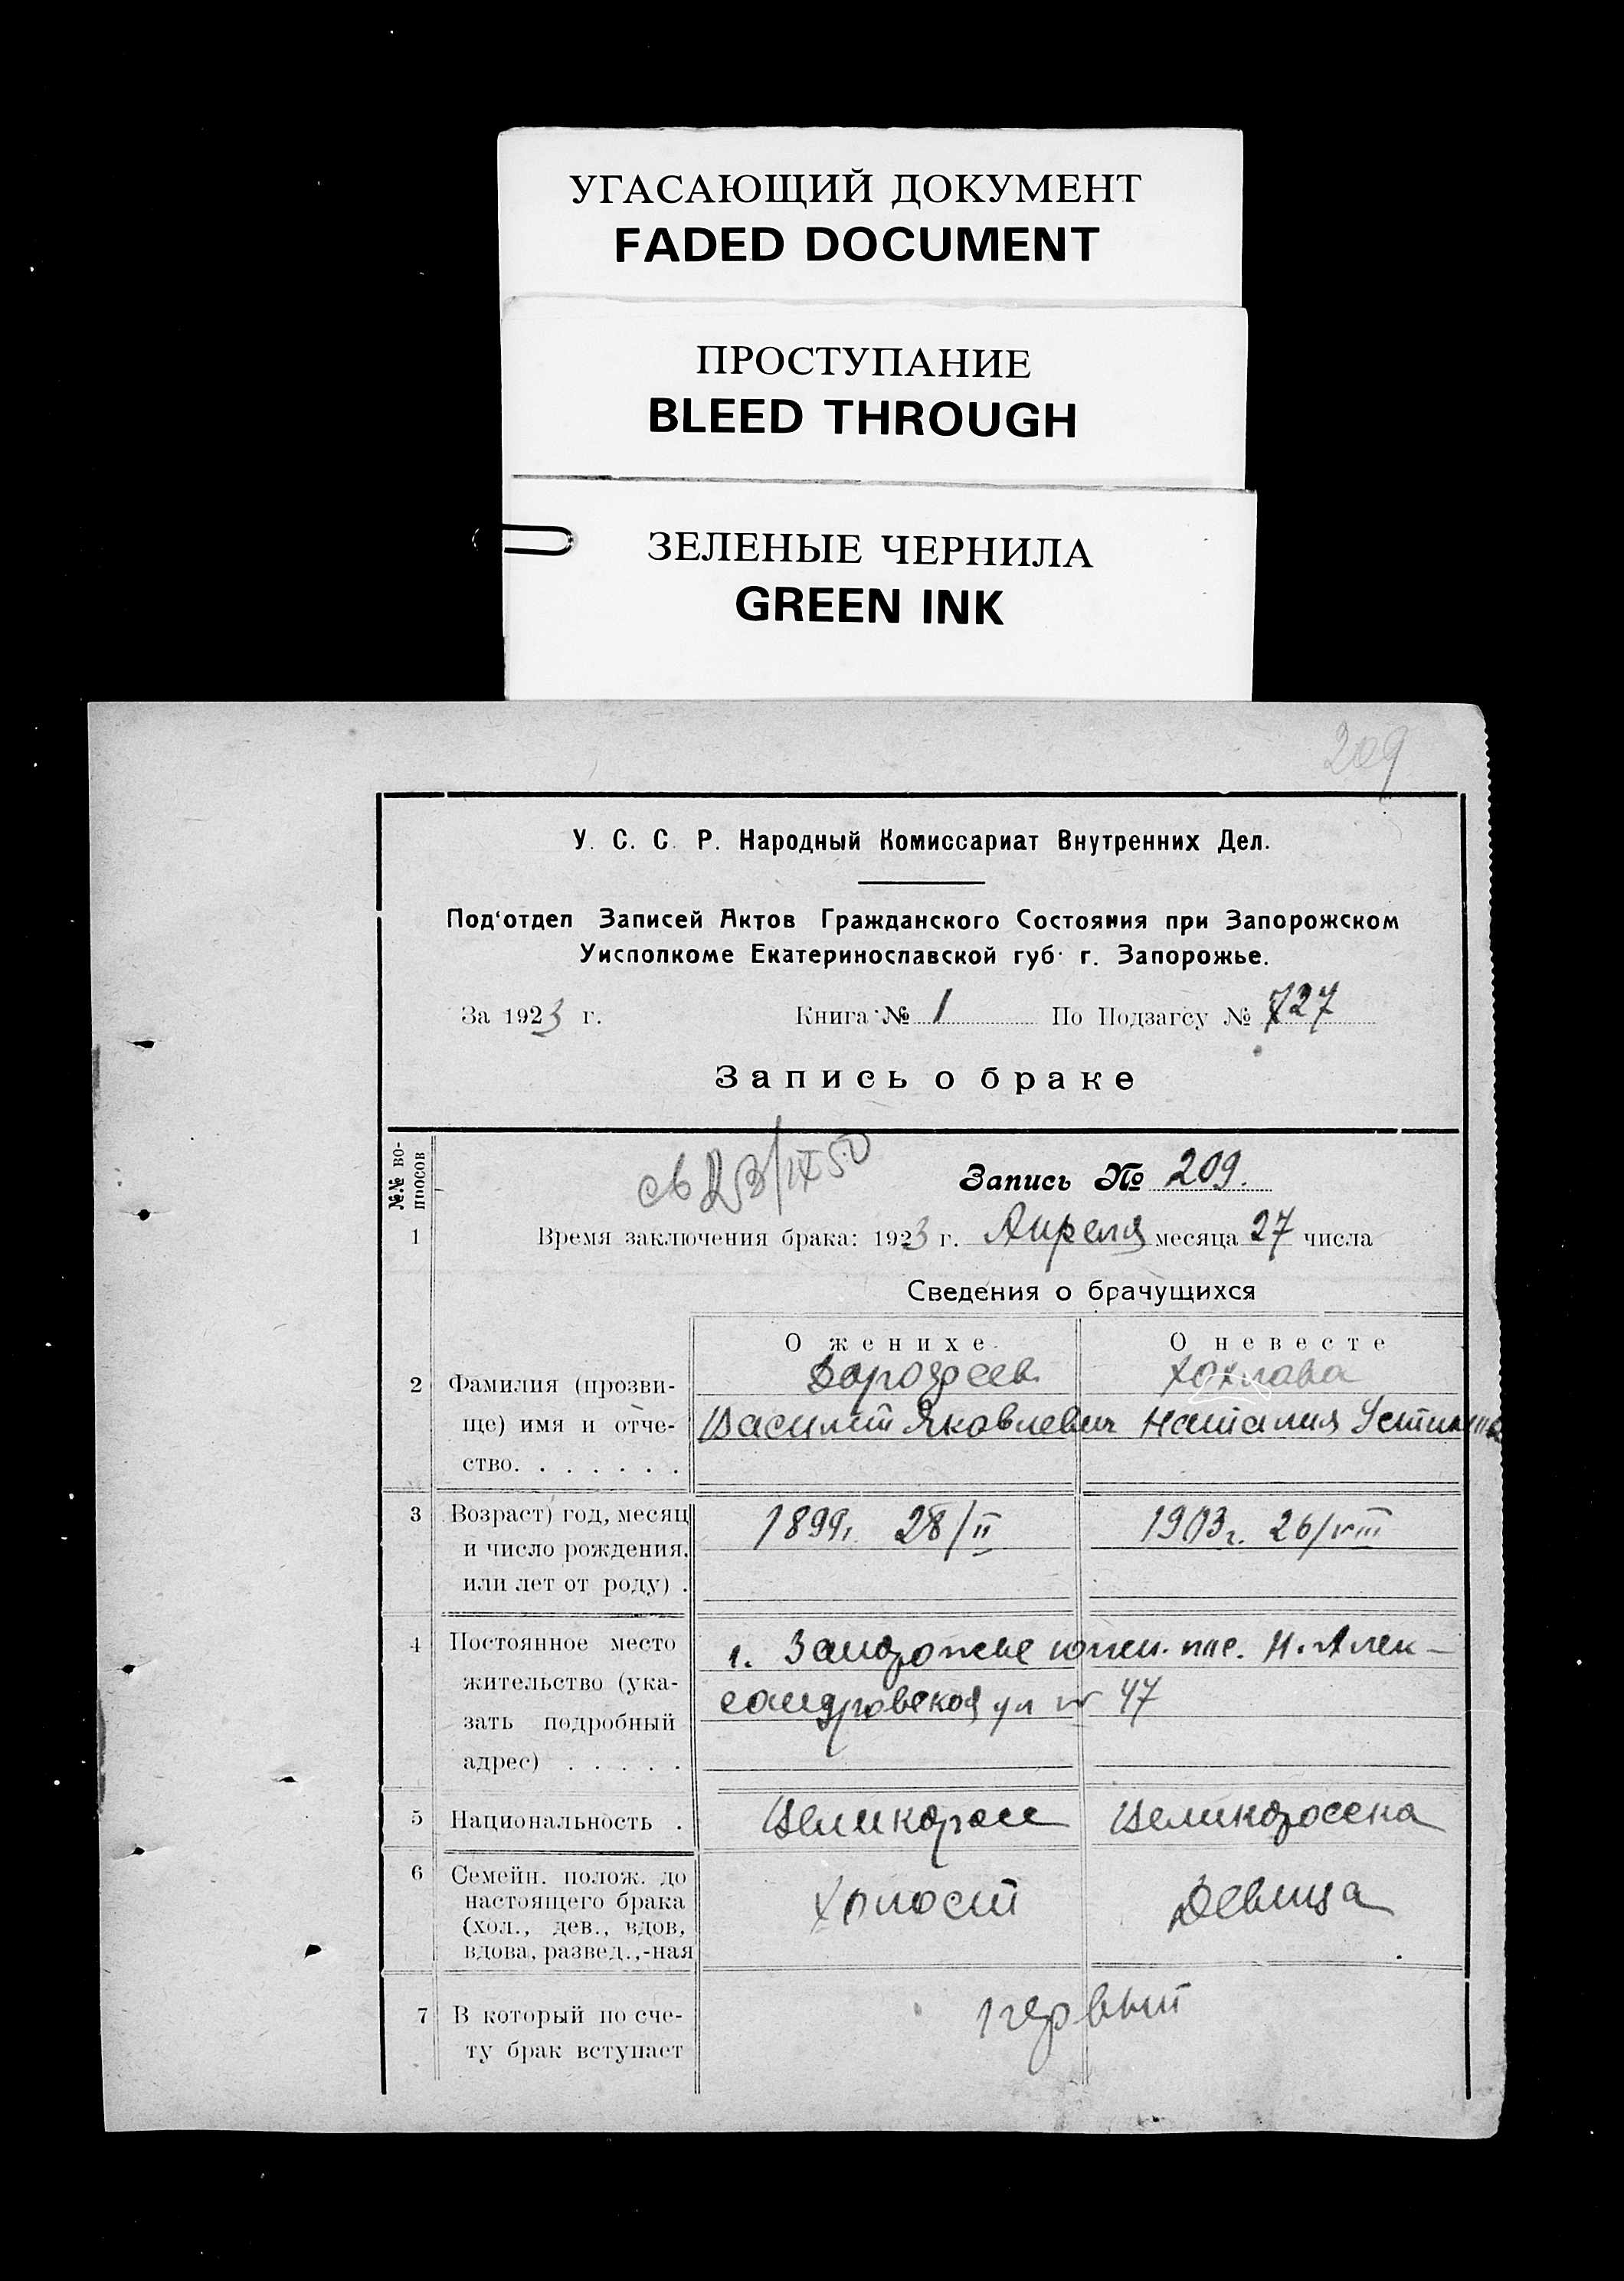 УГАСАЮЩИЙ ДОКУМЕНТ
FADED DOCUMENT
ПРОСТУПАНИЕ
BLEED THROUGH
ЗЕЛЕНЫЕ ЧЕРНИЛА
GREEN INK
209
У. С. С. Р. Народный Комиссариат Внутренних Дел.
Под'отдел Записей Актов Гражданского Состояния при Запорожском
Уисполкоме Екатеринославской губ. г. Запорожье.
За 1923 г. Книга № 1 По Подзагсу № 727
Запись о браке
№№ во-
просов
св 23/IX 50
Запись № 209.
1 Время заключения брака: 1923 г. Апреля месяца 27 числа
Сведения о брачущихся
О женихе. О невесте
2 Фамилия (прозви- Хохлова
ще) имя и отче- Василий Яковлевич Наталия
ство. . . . . . .
3 Возраст) год, месяц 1899г. 28/II 1903г. 26/VIII
и число рождения,
или лет от роду) .
4 Постоянное место г. Запорожье южн. пос. Н. Алек-
жительство (ука- сандровская ул № 47
зать подробный
адрес) . . . . .
5 Национальность . Великоросс Великоросска
6 Семейн. полож. до
настоящего брака Холост Девица
(хол., дев., вдов,
вдова, развед.,-ная
7 В который по сче- первый
ту брак вступает